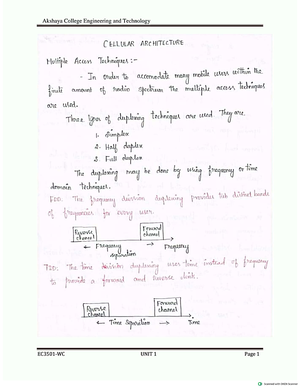 Akshaya College Engineering and Technology
CELLULAR ARCHITECTURE
Multiple Access Techniques :-
- In order to accomodate many mobile users within the
finite amount of radio spectrum the multiple access techniques
are used.
Three types of duplexing techniques are used. They are.
1. Simplex
2. Half duplex
3. Full duplex
The duplexing may be done by using frequency or time
domain techniques.
FDD: The frequency division duplexing provides two distinct bands
of frequencies for every user.
Reverse channel Forward channel
← Frequency separation → Frequency
TDD: The time division duplexing uses time instead of frequency
to provide a forward and reverse link.
Reverse channel Forward channel
← Time Separation → Time
EC3501-WC UNIT 1 Page 1